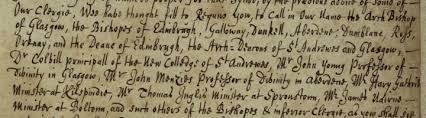 Our Clergie, Wee have thought fill to Require you, to Call in Our Name the Arch Bishop
of Glasgow, the Bishopes of Edinbrugh, Galloway, Dunkell, Aberdene, Dumblane, Ross,
Orknay, and the Deane of Edinbrugh, the Arch-Deacons of St Andrewes and Glasgow,
Dr Colvill principall of the New Colledge of St Andrewes, Mr John Young Professor of
Divinity in Glasgow, Mr John Menzies Professor of Divinity in Aberdene, Mr Hary Guthrie
Minister at Kilspindie, Mr Thomas Inglis Minister at Sproustom, Mr James Nairne
Minister at Boltom, and such others of the Bishopes & inferior Clergie, as you shall